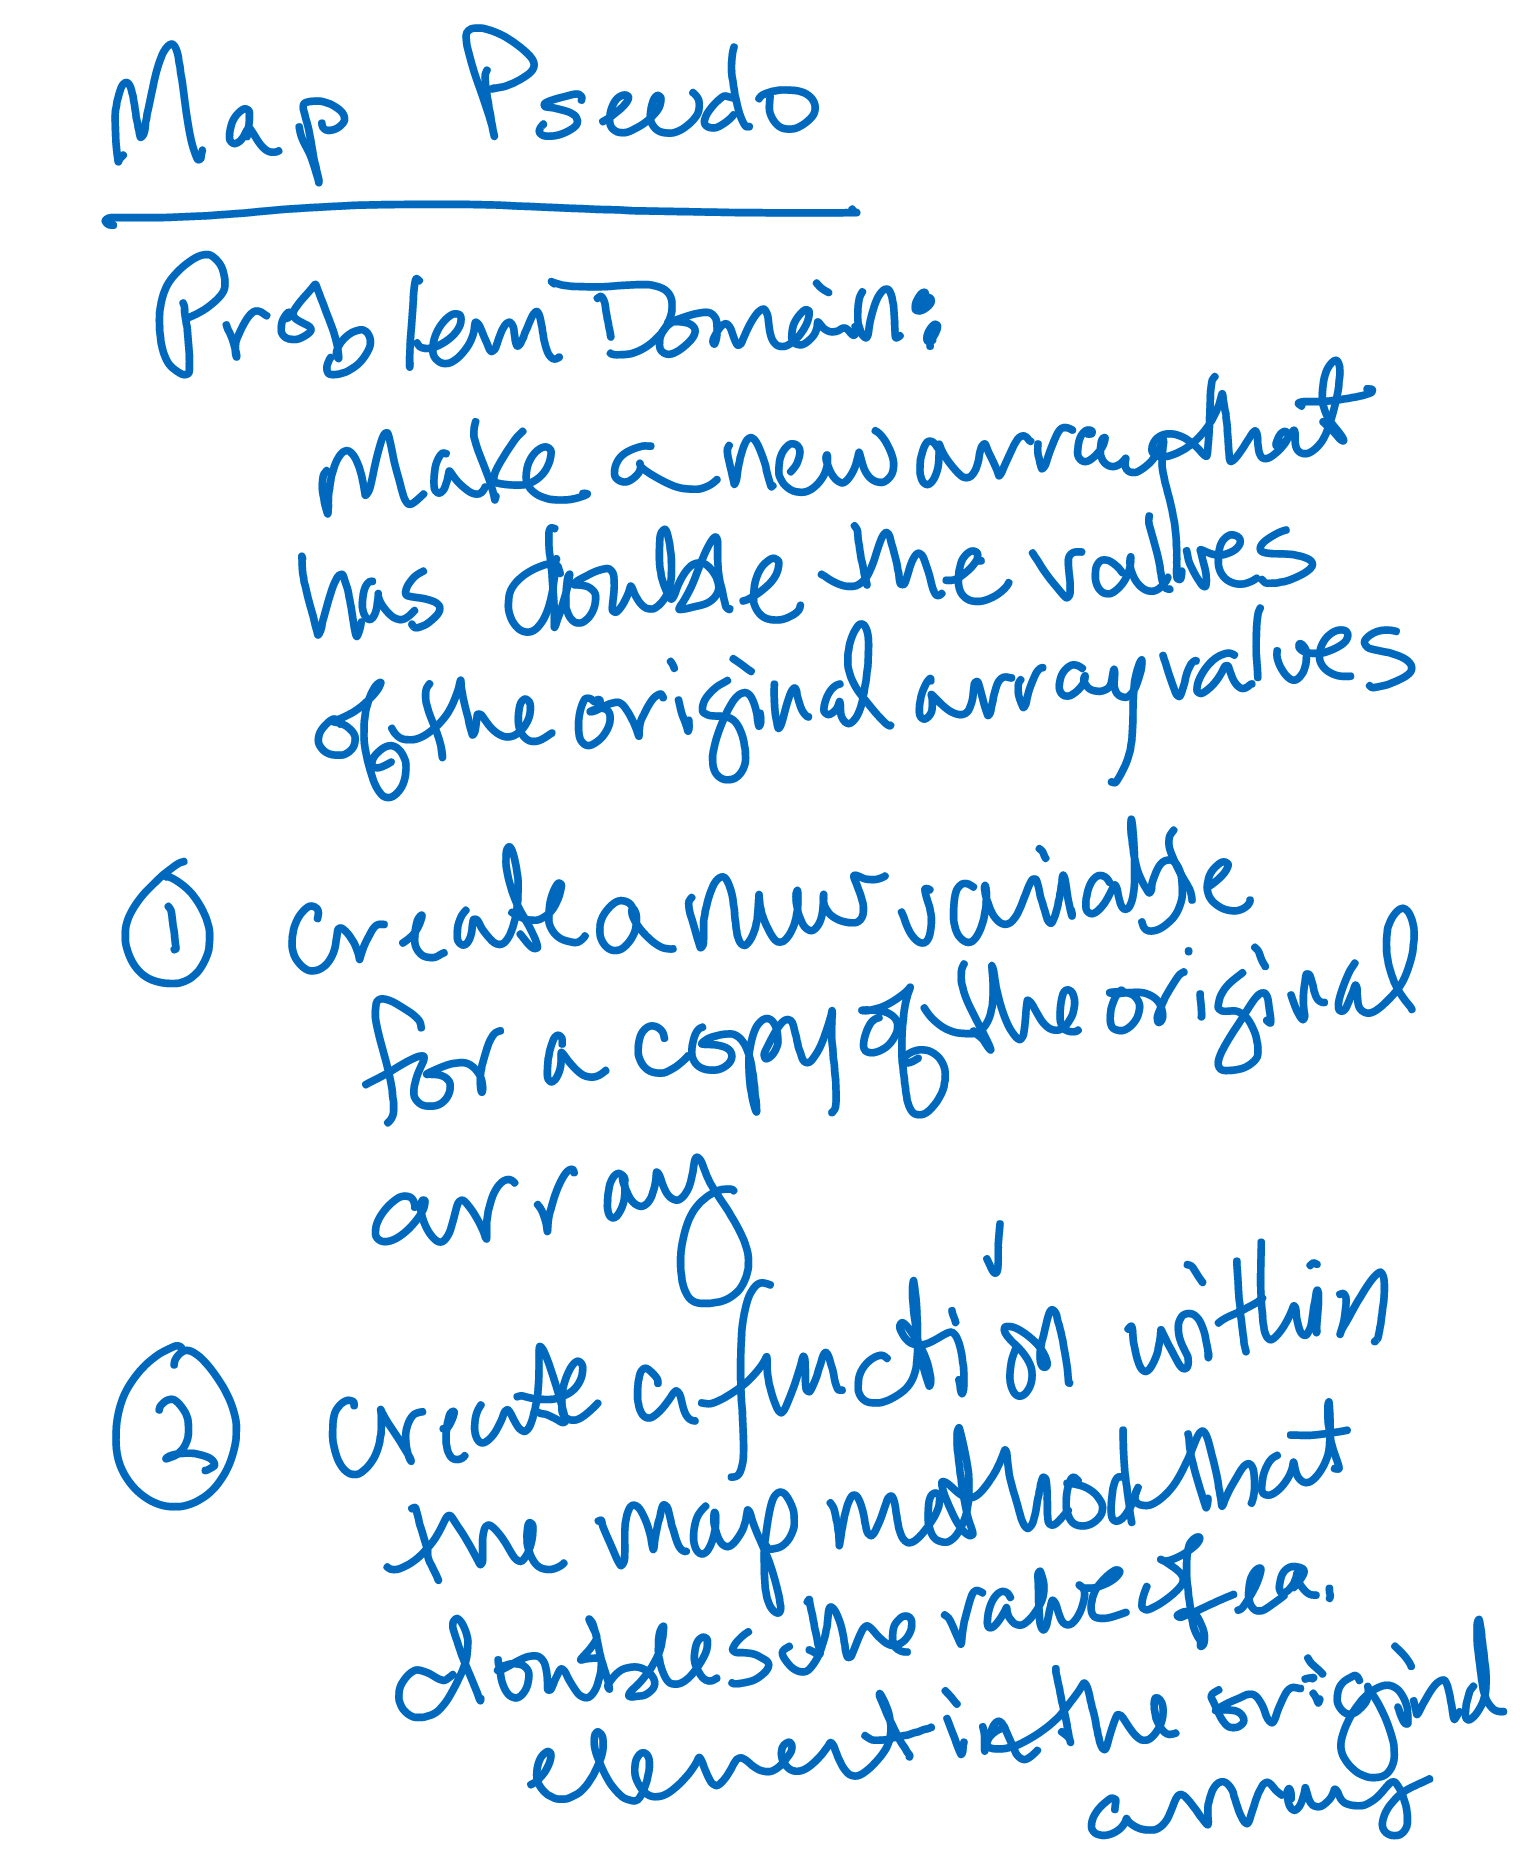 Map Pseudo
Problem Domain:
Make a new array that
has double the values
of the original array values
① create a new variable
for a copy of the original
array
② create a function within
the map method that
doubles the value of ea.
element in the original
array